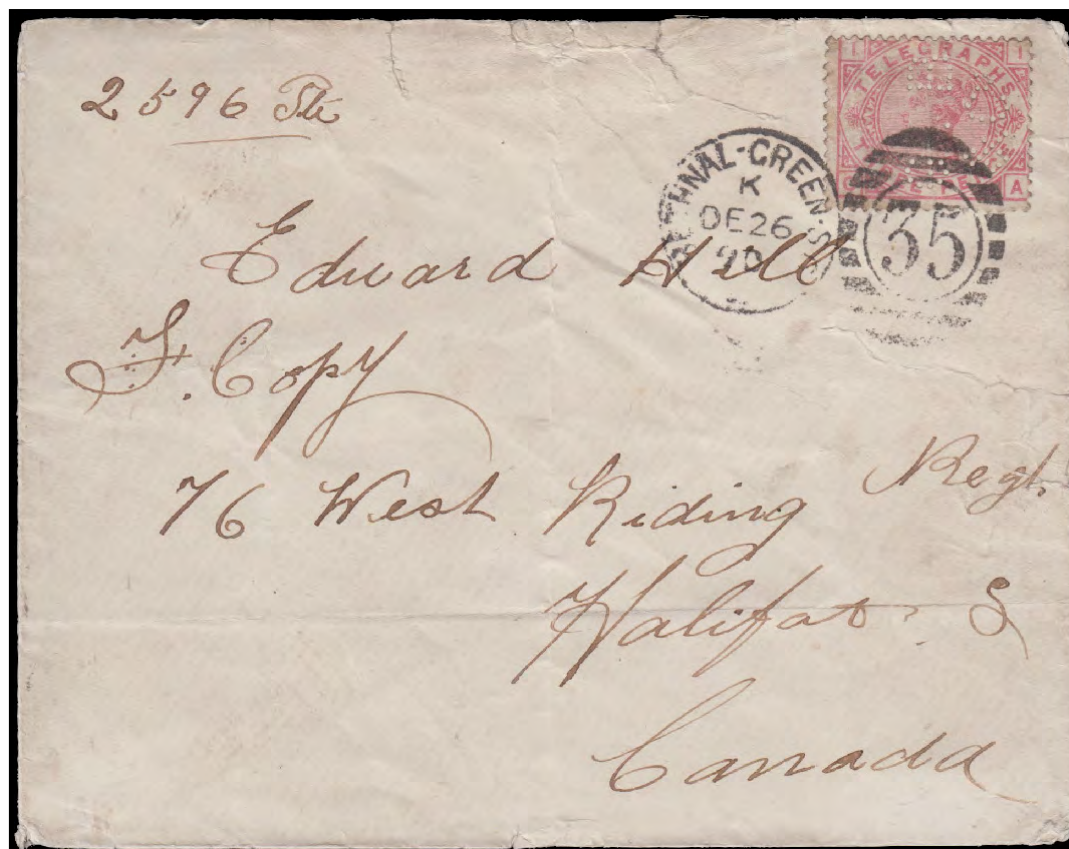 2596 Pte
TELEGRAPHS
I I
A
BETHNAL-GREEN.S.O
K
DE 26
90
35
Edward Hill
F. Copy
76 West Riding Regt.
Halifat. S
Canada